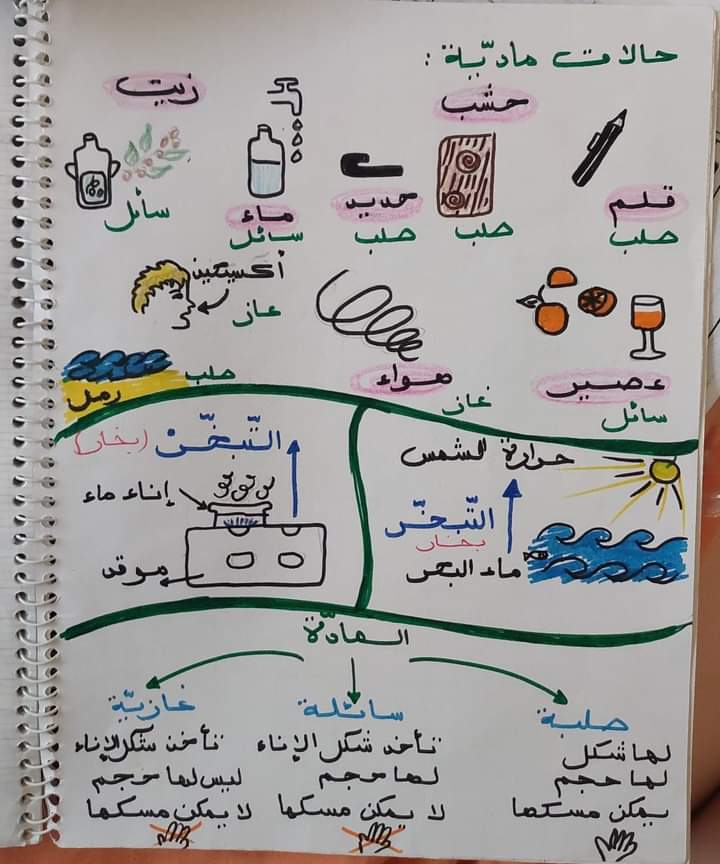 حالات ماديّة :
قلم
صلب
خشب
صلب
حديد
صلب
ماء
سائل
زيت
سائل
عصير
سائل
هواء
غاز
أكسيجين
غاز
صلب
رمل
حرارة الشمس
التّبخّر
بخار
ماء البحر
التّبخّر (بخار)
إناء ماء
موقد
المادّة
صلبة
لها شكل
لها حجم
يمكن مسكها
سائلة
تأخذ شكل الإناء
لها حجم
لا يمكن مسكها
غازيّة
تأخذ شكل الإناء
ليس لها حجم
لا يمكن مسكها